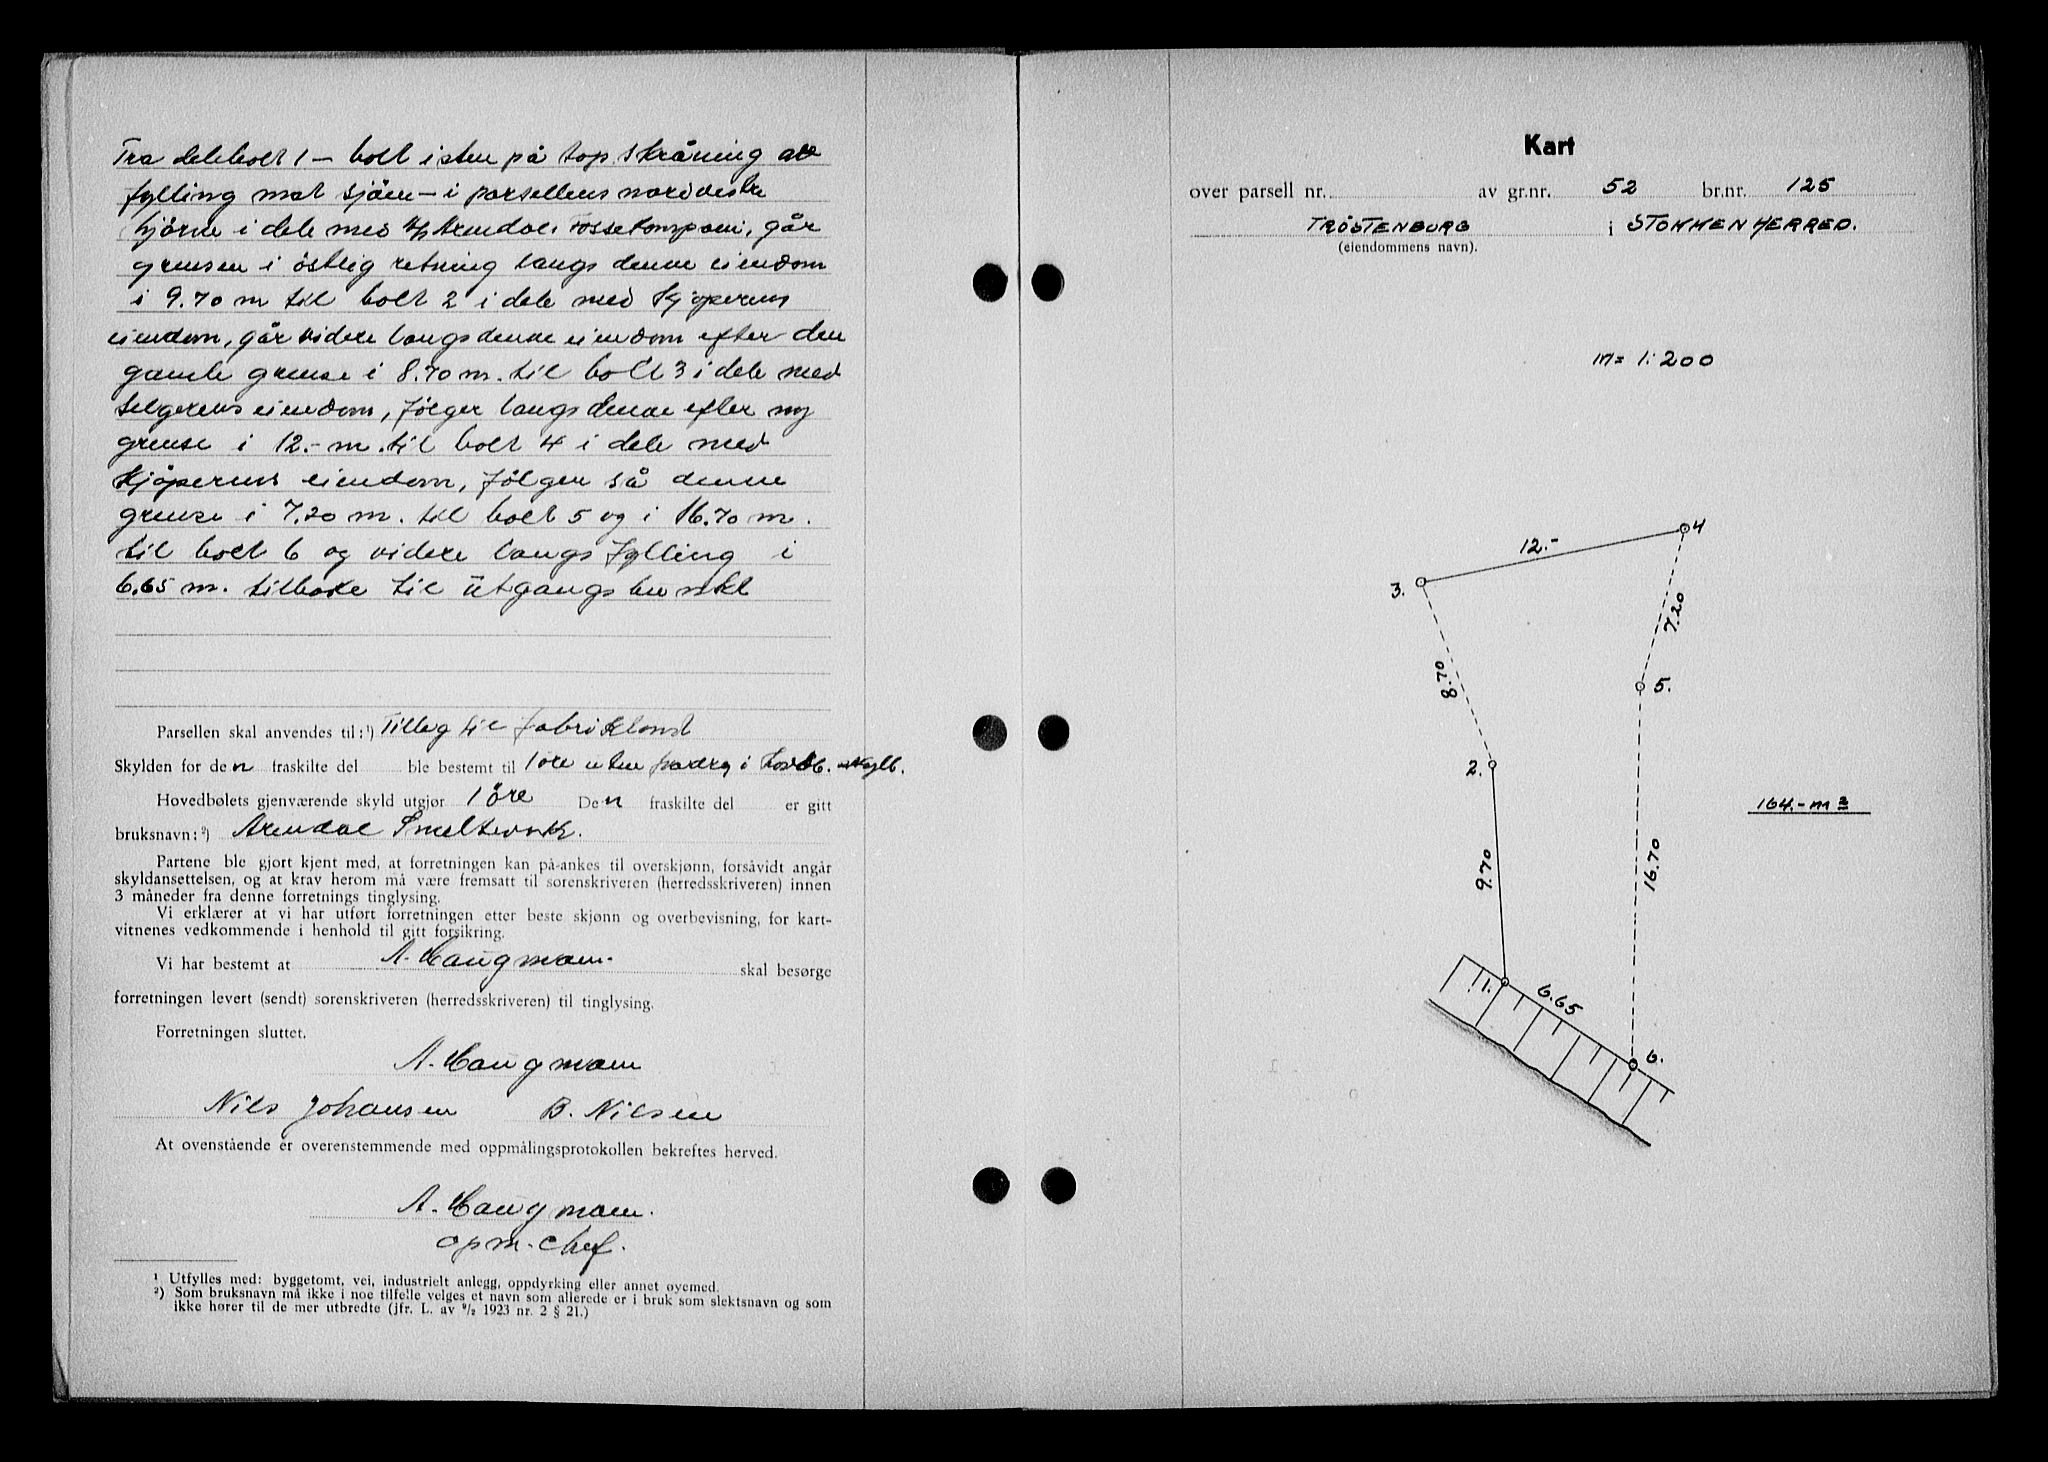 Fra delebolt 1 – bolt i sten på top skråning av
fylling mot sjöen – i parsellens nordvestre
hjörne i dele med A/S Arendals Fossekompani, går
grensen i östlig retning langs denne eiendom
i 9.70 m til bolt 2 i dele med Kjöperens
eiendom, går videre langs denne eiendom efter den
gamle grense i 8.70 m. til bolt 3 i dele med
selgerens eiendom, följer langs denne efter ny
grense i 12.- m. til bolt 4 i dele med
Kjöperens eiendom, fölger så denne
grense i 7.20 m. til bolt 5 og i 16.70 m.
til bolt 6 og videre langs fylling i
6.65 m. tilbake til ütgangspunkt
Parsellen skal anvendes til: ¹) Tilleg til fabriktomt
Skylden for den fraskilte del ble bestemt til 1 öre uten fradrag i
Hovedbølets gjenværende skyld utgjør 1 öre Den fraskilte del er gitt
bruksnavn: ²) Arendal Smelteverk.
Partene ble gjort kjent med, at forretningen kan på-ankes til overskjønn, forsåvidt angår
skyldansettelsen, og at krav herom må være fremsatt til sorenskriveren (herredsskriveren) innen
3 måneder fra denne forretnings tinglysing.
Vi erklærer at vi har utført forretningen etter beste skjønn og overbevisning, for kart-
vitnenes vedkommende i henhold til gitt forsikring.
Vi har bestemt at A. Haugmoen. skal besørge
forretningen levert (sendt) sorenskriveren (herredsskriveren) til tinglysing.
Forretningen sluttet.
A. Haugmoen
Nils Johansen B. Nilsen
At ovenstående er overenstemmende med oppmålingsprotokollen bekreftes herved.
A. Haugmoen.
opm. chef.
¹ Utfylles med: byggetomt, vei, industrielt anlegg, oppdyrking eller annet øyemed.
²) Som bruksnavn må ikke i noe tilfelle velges et navn som allerede er i bruk som slektsnavn og som
ikke hører til de mer utbredte (jfr. L. av 9/2 1923 nr. 2 § 21.)
Kart
over parsell nr. av gr.nr. 52 br.nr. 125
TRÖSTENBURG i STOKKEN HERRED.
(eiendommens navn).
m= 1:200
4
12.-
3.
7.20
8.70
5.
2.
164.- m²
9.70
16.70
1.
6.65
6.